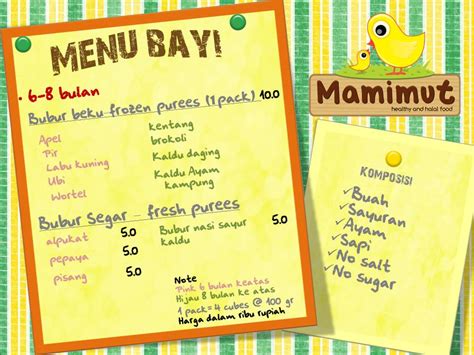 MENU BAYI
• 6-8 bulan
Bubur beku frozen purees (1 pack) 10.0
Apel
Pir
Labu kuning
Ubi
Wortel
kentang
brokoli
Kaldu daging
Kaldu Ayam
kampung
Bubur Segar - fresh purees
alpukat 5.0
pepaya 5.0
pisang 5.0
Bubur nasi sayur 5.0
kaldu
Note
Pink 6 bulan keatas
Hijau 8 bulan ke atas
1 pack= 4 cubes @ 100 gr
Harga dalam ribu rupiah
Mamimut
healthy and halal food
KOMPOSISI
✓Buah
✓Sayuran
✓Ayam
✓Sapi
✓No salt
✓No sugar